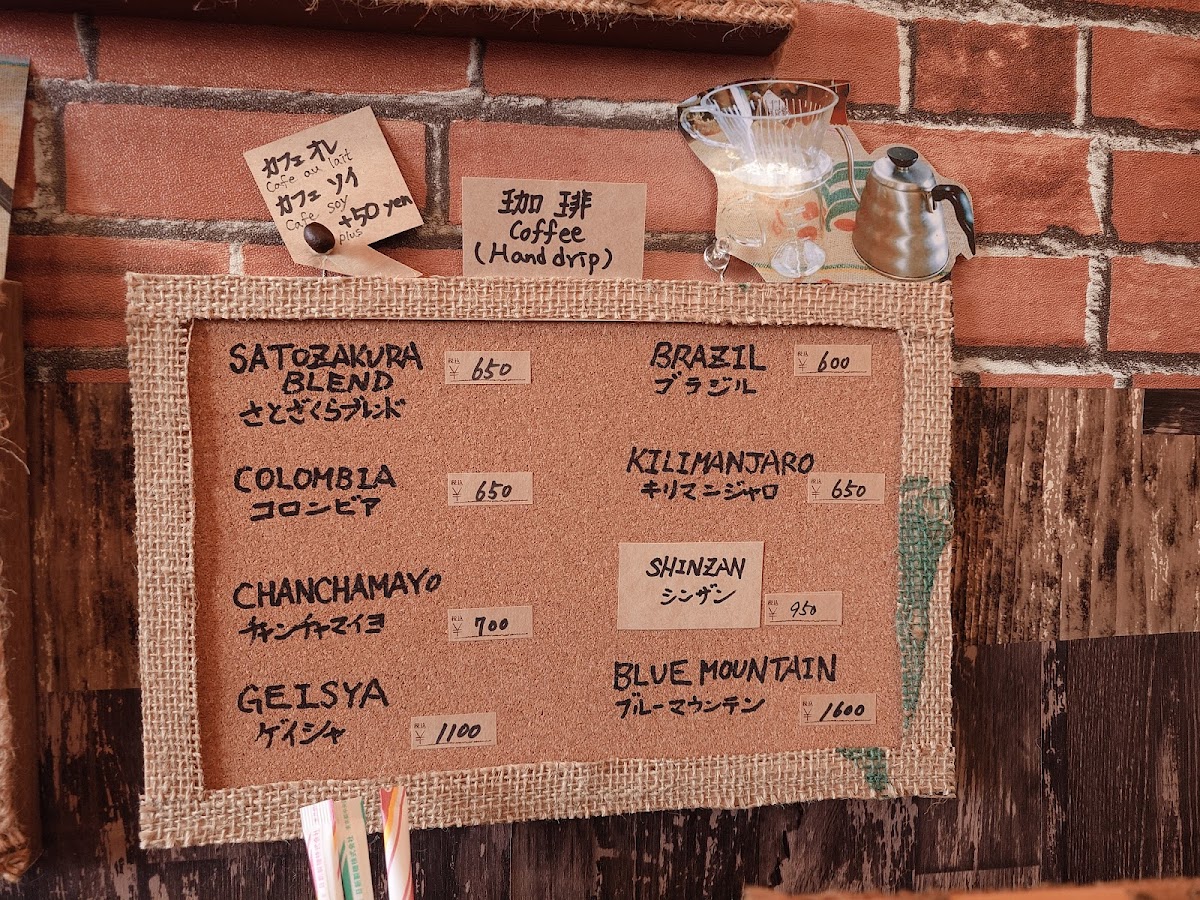 カフェオレ
Cafe au lait
カフェ ソイ
Cafe soy
+50 yen
plus
珈琲
Coffee
(Hand drip)
SATOZAKURA
BLEND
さとざくらブレンド
税込 ¥650
COLOMBIA
コロンビア
税込 ¥650
CHANCHAMAYO
チャンチャマイヨ
税込 ¥700
GEISYA
ゲイシャ
税込 ¥1100
BRAZIL
ブラジル
税込 ¥600
KILIMANJARO
キリマニジャロ
税込 ¥650
SHINZAN
シンザン
税込 ¥950
BLUE MOUNTAIN
ブルーマウンテン
税込 ¥1600